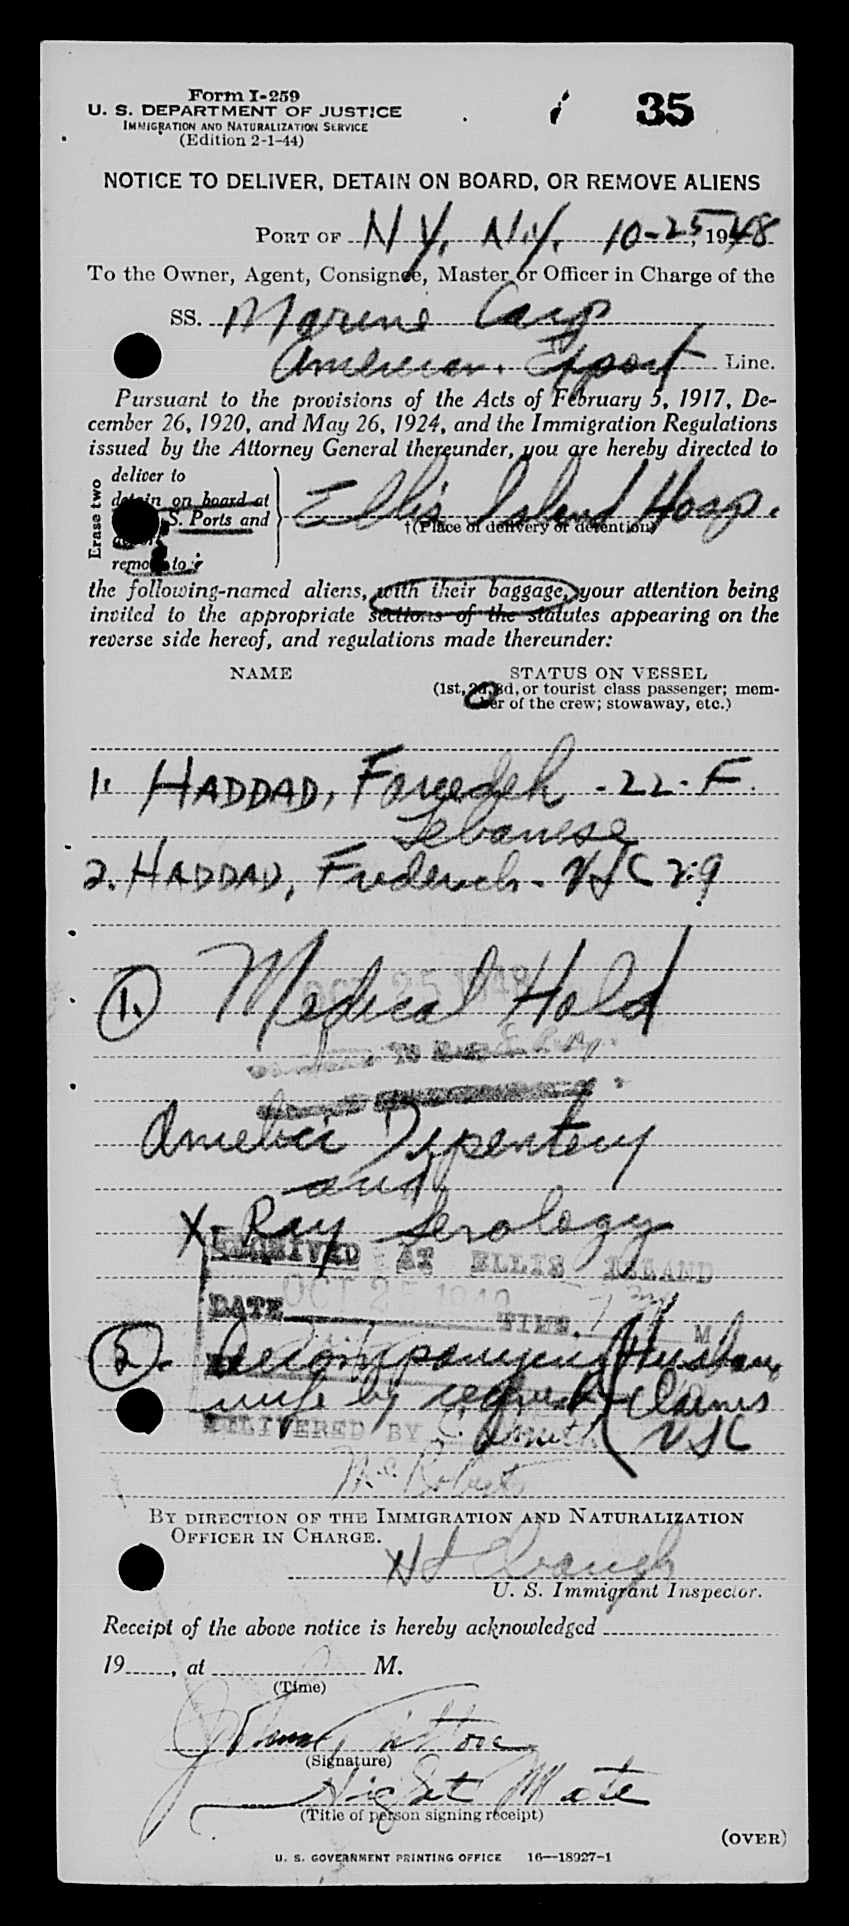 Form I-259
U. S. DEPARTMENT OF JUSTICE
IMMIGRATION AND NATURALIZATION SERVICE
(Edition 2-1-44)
35
NOTICE TO DELIVER, DETAIN ON BOARD, OR REMOVE ALIENS
PORT OF N.Y. N.Y. 10-25, 1948
To the Owner, Agent, Consignee, Master or Officer in Charge of the
SS. Marine Carp
American Export Line.
Pursuant to the provisions of the Acts of February 5, 1917, De-
cember 26, 1920, and May 26, 1924, and the Immigration Regulations
issued by the Attorney General thereunder, you are hereby directed to
Erase two
deliver to
detain on board at
S. Ports and
remove to
Ellis Island Hosp.
†(Place of delivery or detention)
the following-named aliens, with their baggage, your attention being
invited to the appropriate sections of the statutes appearing on the
reverse side hereof, and regulations made thereunder:
NAME STATUS ON VESSEL
(1st, 2d, 3d, or tourist class passenger; mem-
ber of the crew; stowaway, etc.)
1. HADDAD, Fareedeh - 22 - F.
Lebanese
2. HADDAD, Frederick - USC 29
1. Medical Hold
OCT 25 1948
Amebic Dysentery
and
X-Ray Serology
RECEIVED AT ELLIS ISLAND
DATE OCT 25 1948 TIME M
2. Accompanying Husband
wife by request Claims
USC
DELIVERED BY
BY DIRECTION OF THE IMMIGRATION AND NATURALIZATION
OFFICER IN CHARGE.
U. S. Immigrant Inspector.
Receipt of the above notice is hereby acknowledged
19 , at M.
(Time)
(Signature)
Night Mate
(Title of person signing receipt)
(OVER)
U. S. GOVERNMENT PRINTING OFFICE 16—18927-1